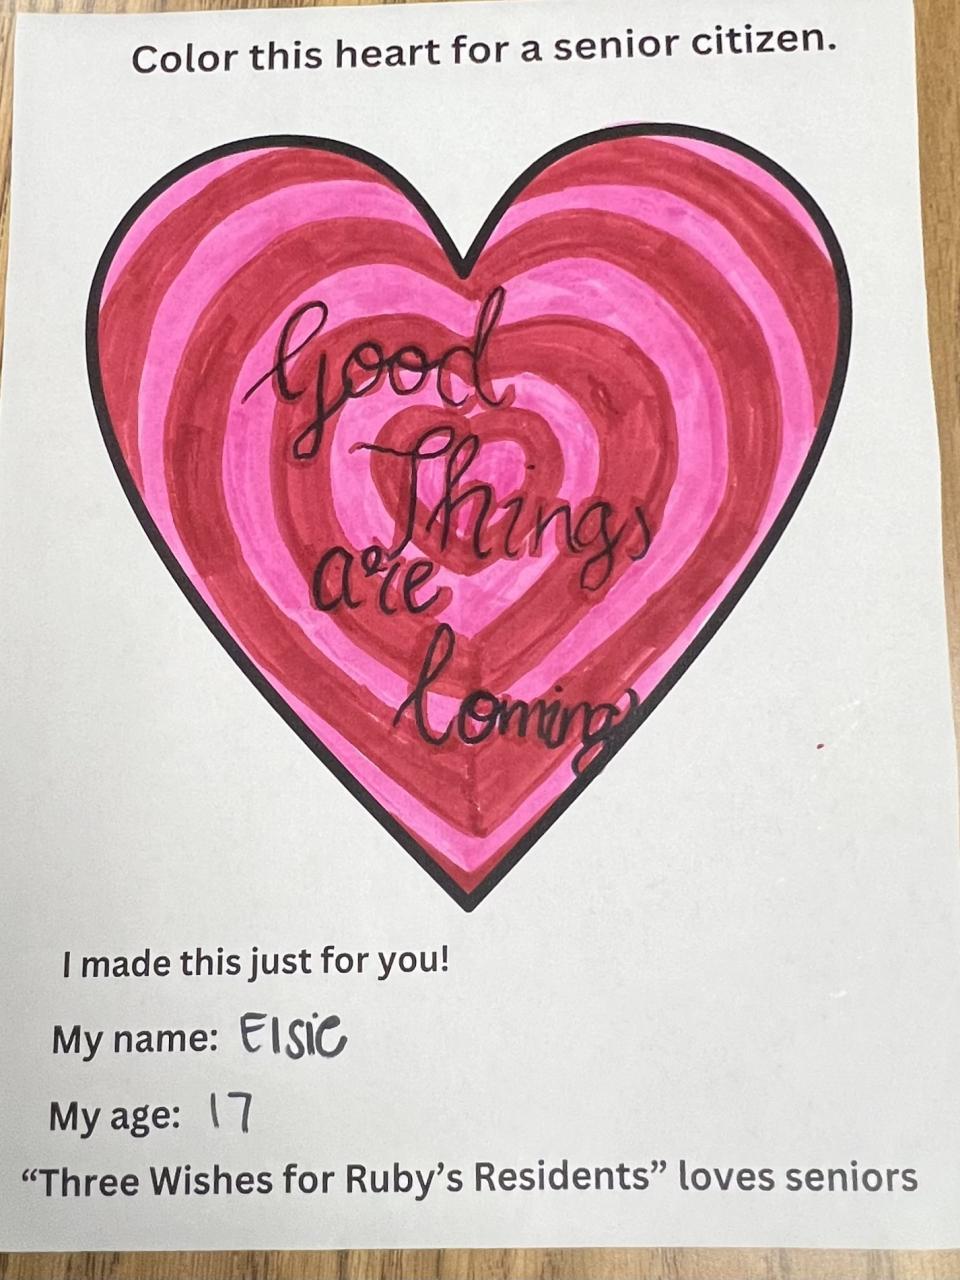 Color this heart for a senior citizen.
Good
Things
are
Coming
I made this just for you!
My name: Elsie
My age: 17
“Three Wishes for Ruby’s Residents” loves seniors